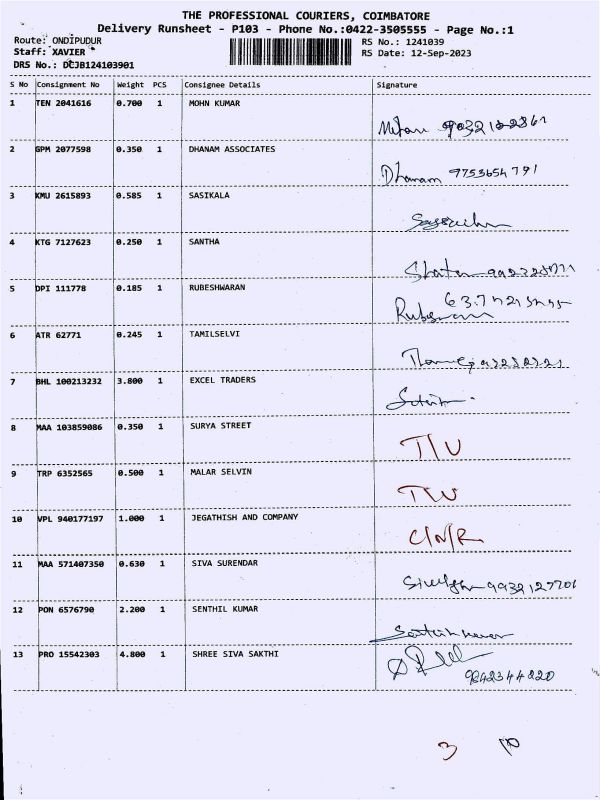 THE PROFESSIONAL COURIERS, COIMBATORE
Delivery Runsheet - P103 - Phone No.:0422-3505555 - Page No.:1
Route: ONDIPUDUR RS No.: 1241039
Staff: XAVIER RS Date: 12-Sep-2023
DRS No.: DCJB124103901
S No Consignment No Weight PCS Consignee Details Signature
1 TEN 2041616 0.700 1 MOHN KUMAR
2 GPM 2077598 0.350 1 DHANAM ASSOCIATES
Dhanam 9753654791
3 KMU 2615893 0.585 1 SASIKALA
4 KTG 7127623 0.250 1 SANTHA
5 DPI 111778 0.185 1 RUBESHWARAN
6 ATR 62771 0.245 1 TAMILSELVI
7 BHL 100213232 3.800 1 EXCEL TRADERS
8 MAA 103859086 0.350 1 SURYA STREET
T/U
9 TRP 6352565 0.500 1 MALAR SELVIN
10 VPL 940177197 1.000 1 JEGATHISH AND COMPANY
C/N/R
11 MAA 571407350 0.630 1 SIVA SURENDAR
12 PON 6576790 2.200 1 SENTHIL KUMAR
13 PRO 15542303 4.800 1 SHREE SIVA SAKTHI
9842344220
3 10